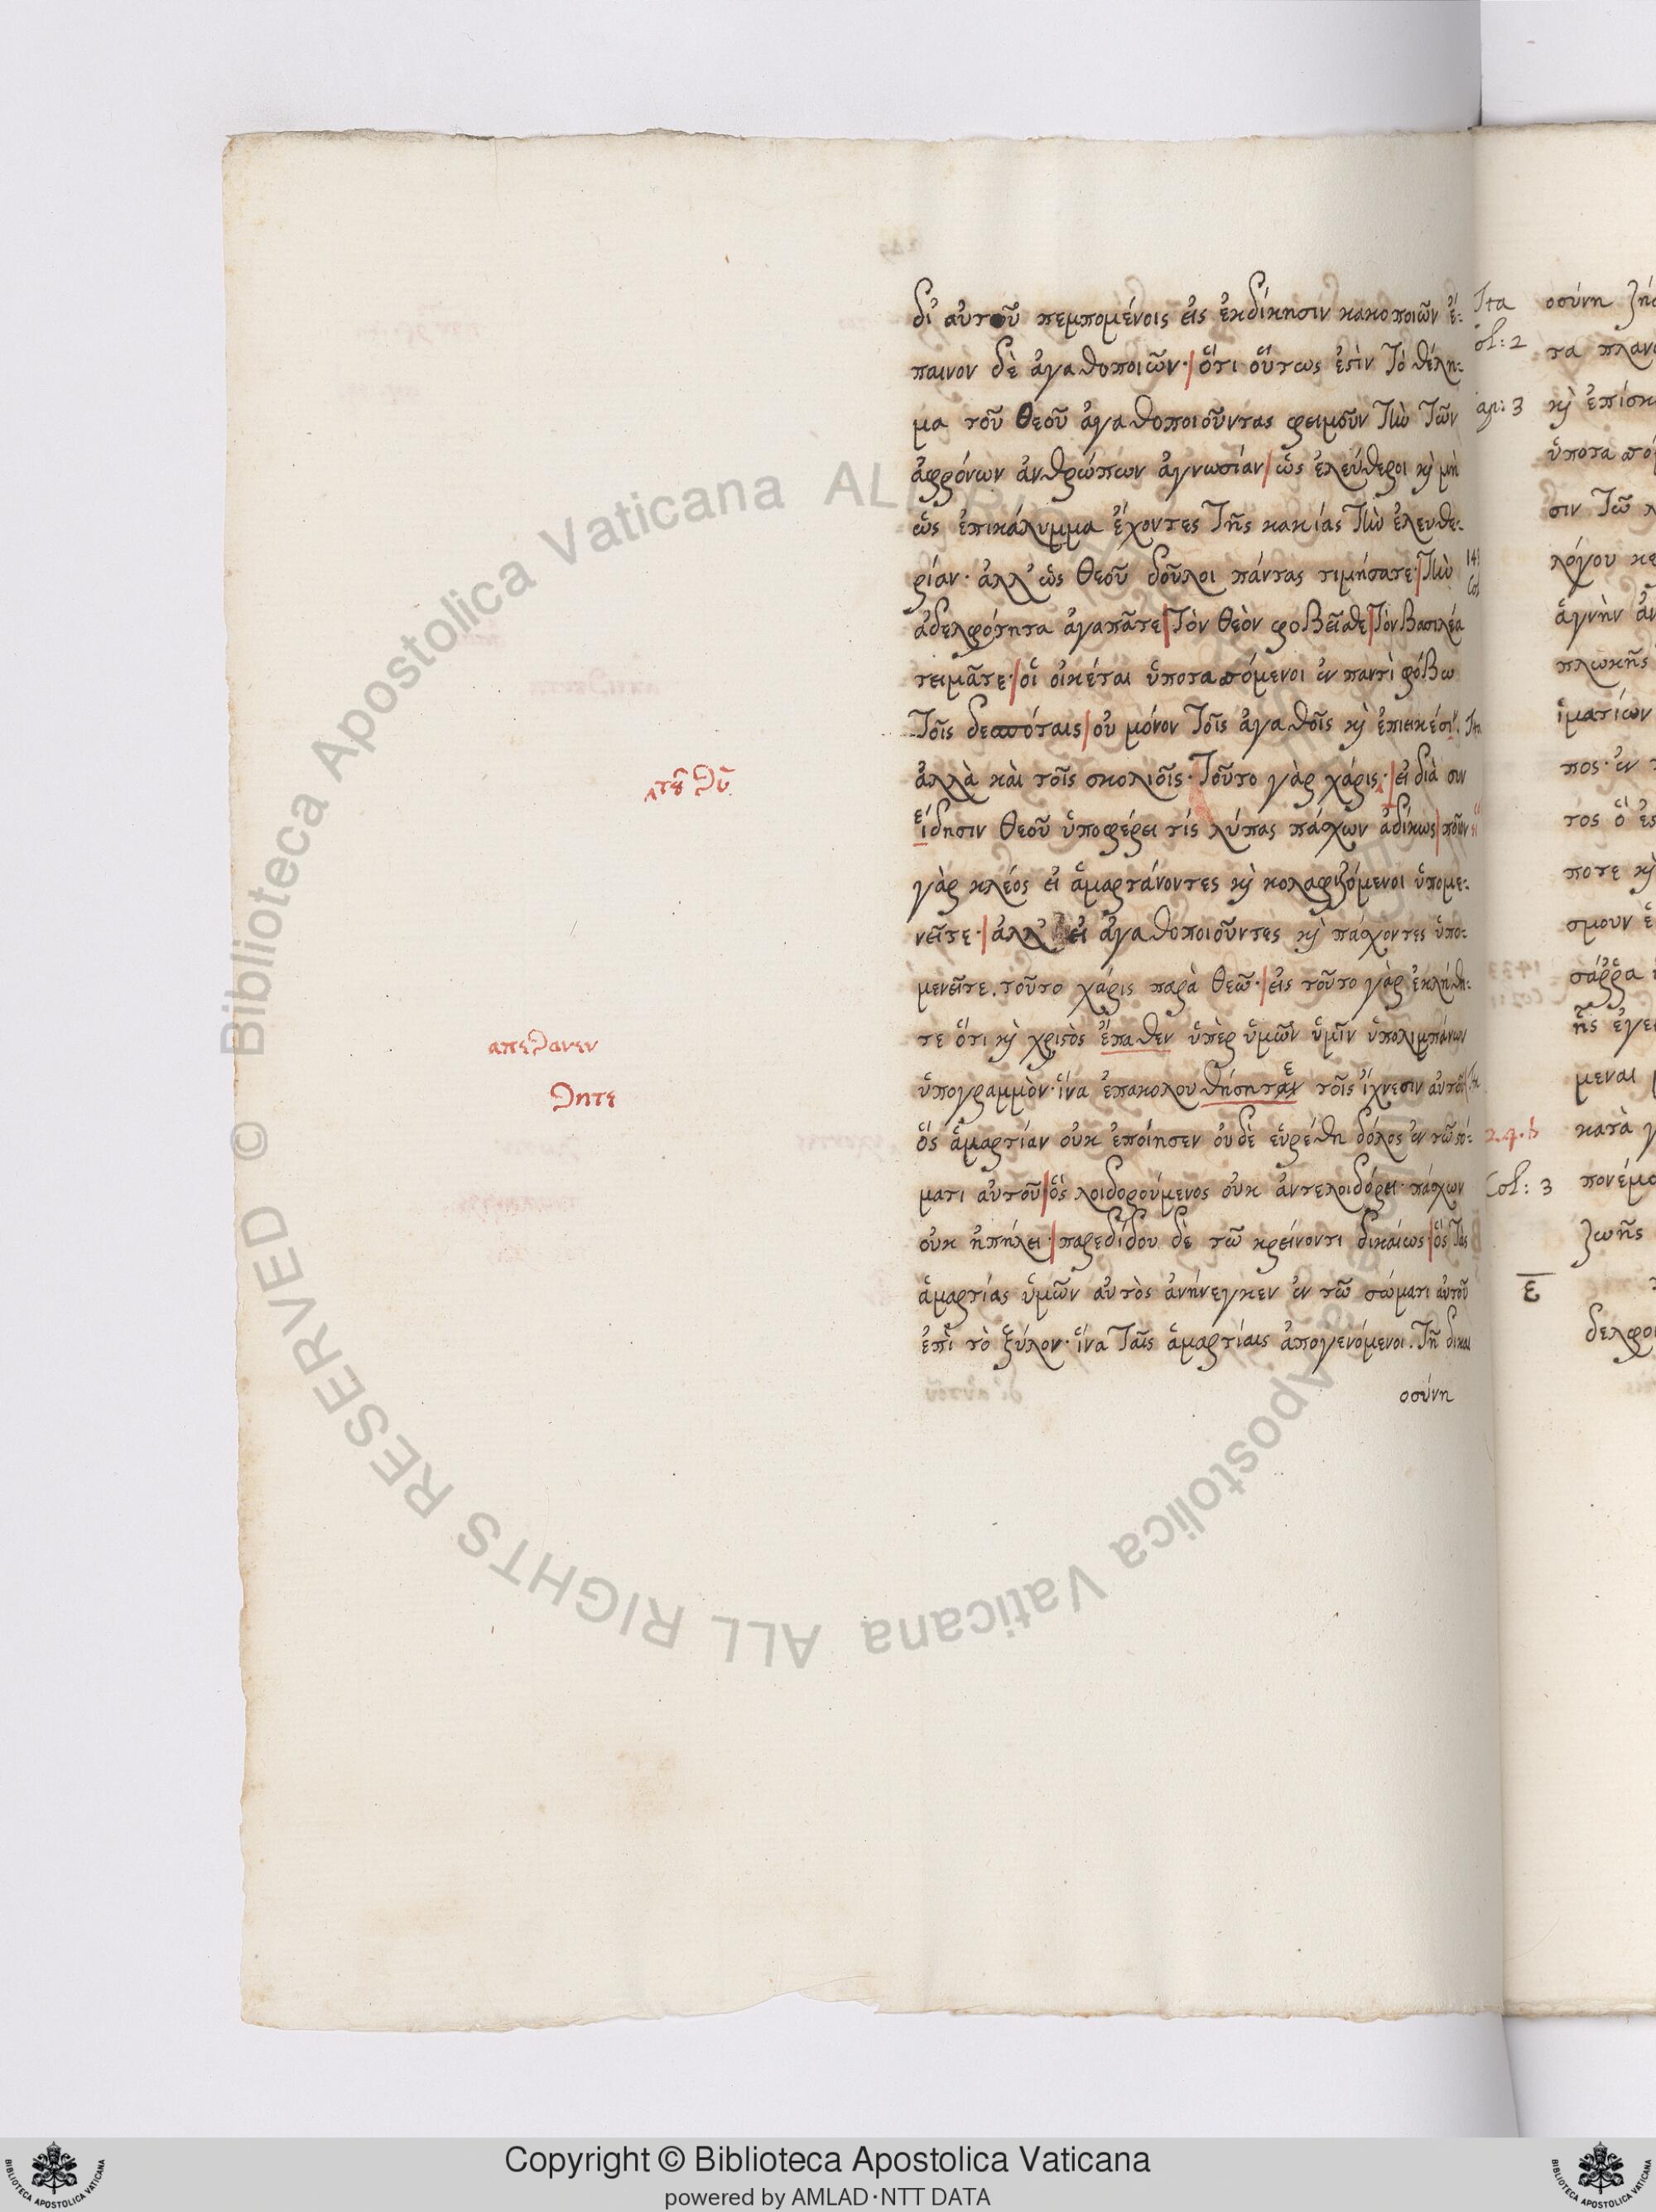 δι αὐτοῦ πεμπομένοις εἰς ἐκδίκησιν κακοποιῶν ἔ-
παινον δὲ ἀγαθοποιῶν· ὅτι οὕτως ἐστὶν τὸ θέλη-
μα τοῦ Θεοῦ ἀγαθοποιοῦντας φειμοῦν τὴν τῶν
ἀφρόνων ἀνθρώπων ἀγνωσίαν ὡς ἐλεύθεροι κὶ μὴ
ὡς ἐπικάλυμμα ἔχοντες τῆς κακίας τὴν ἐλευθε-
ρίαν· ἀλλ' ὡς Θεοῦ δοῦλοι πάντας τιμήσατε· τὴν
ἀδελφότητα ἀγαπᾶτε τὸν θεὸν φοβεῖσθε τὸν βασιλέα
τειμᾶτε· οἱ οἰκέται ὑποτασσόμενοι ἐν παντὶ φόβω
τοῖς δεσπόταις οὐ μόνον τοῖς ἀγαθοῖς κὶ ἐπιεικέσιν.
ἀλλὰ καὶ τοῖς σκολιοῖς· τοῦτο γὰρ χάρις· εἰ διὰ συν
τοῦ θῦ
είδησιν Θεοῦ ὑποφέρει τίς λύπας πάσχων ἀδίκως ποῖον
γὰρ κλέος εἰ ἁμαρτάνοντες κὶ κολαφιζόμενοι ὑπομε-
νεῖτε· ἀλλ' εἰ ἀγαθοποιοῦντες κὶ πάσχοντες ὑπο-
μενεῖτε. τοῦτο χάρις παρὰ Θεῶ· εἰς τοῦτο γὰρ ἐκλήθη-
τε ὅτι κὶ χριστὸς ἔπαθεν ὑπὲρ ὑμῶν ὑμῖν ὑπολιμπάνων
απεθανεν
ὑπογραμμὸν· ἵνα ἐπακολουθήσηται τοῖς ἴχνεσιν αὐτοῦ
θητε
ὃς ἁμαρτίαν οὐκ ἐποίησεν οὐδὲ εὑρέθη δόλος ἐν τῶ στό-
ματι αὐτοῦ ὃς λοιδορούμενος οὐκ ἀντελοιδόρει· πάσχων
οὐκ ἠπήλει· παρεδίδου δὲ τῶ κρείνοντι δικαίως· ὃς τὰς
ἁμαρτίας ὑμῶν αὐτὸς ἀνήνεγκεν ἐν τῶ σώματι αὐτοῦ
ἐπὶ τὸ ξύλον· ἵνα ταῖς ἁμαρτίαις ἀπογενόμενοι. τῆ δικαι
οσύνη
Ita
ol: 2
ap: 3
24.b
Col: 3
ε
οσύνη
τα
κὶ
σιν τῶ
λόγου
ἁγνὴν
πλωκῆς
ἱματίων
πος· ἐν
τος ὁ
ποτε κὶ
σμουν
σάῤῥα
μεναι
κατὰ
ζωῆς
© Biblioteca Apostolica Vaticana ALL RIGHTS RESERVED
Copyright © Biblioteca Apostolica Vaticana
powered by AMLAD·NTT DATA
BIBLIOTECA APOSTOLICA VATICANA
BIBLIOTECA APOSTOLICA VATICANA